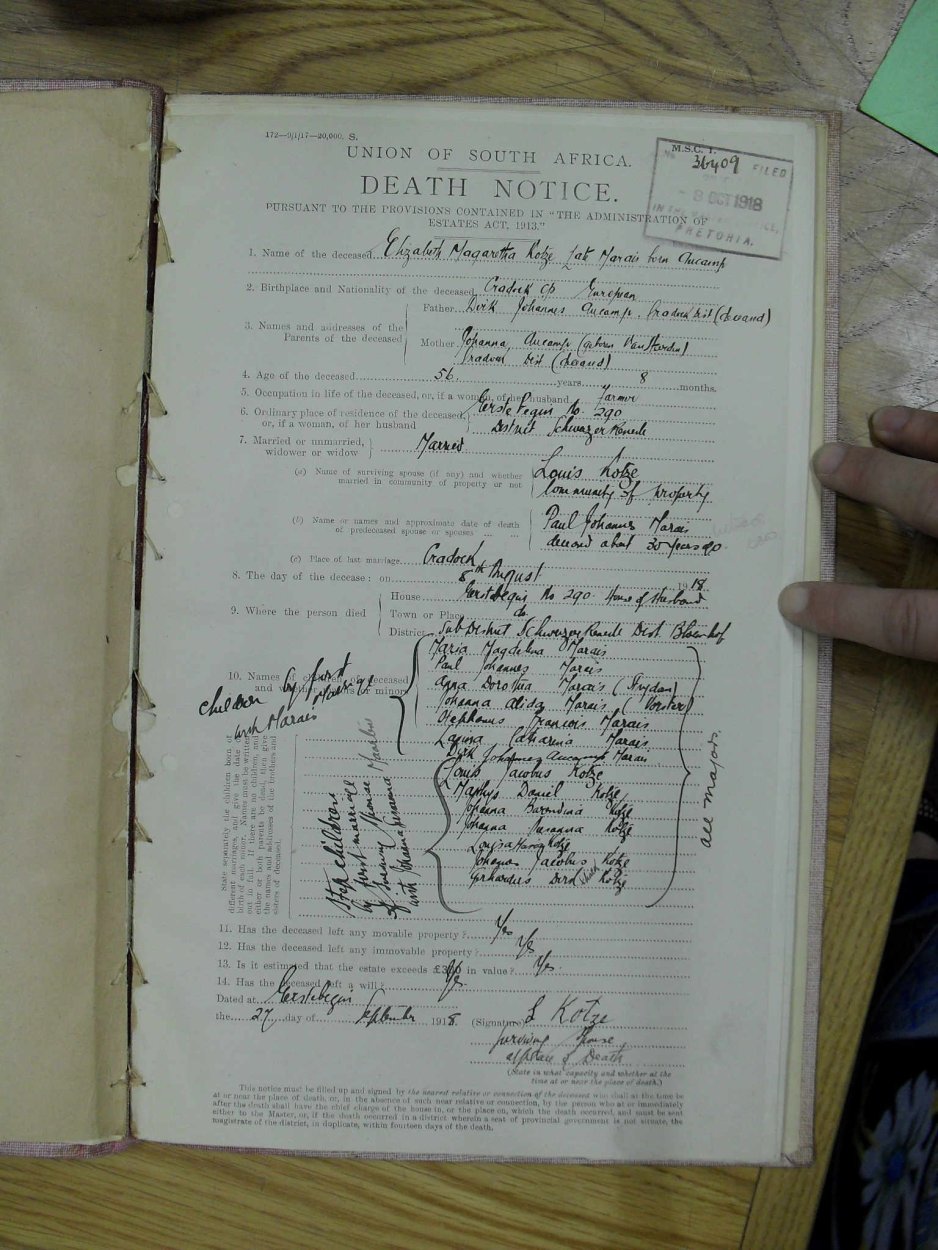 172—9/1/17—20,000. S.
M.S.C. 1.
No 36409 FILED
- 9 OCT 1918
IN THE MASTER'S OFFICE,
PRETORIA.
UNION OF SOUTH AFRICA.
DEATH NOTICE.
PURSUANT TO THE PROVISIONS CONTAINED IN "THE ADMINISTRATION OF
ESTATES ACT, 1913."
1. Name of the deceased Elizabeth Magaretha Kotze late Marais born Aucamp
2. Birthplace and Nationality of the deceased Cradock CP European
3. Names and addresses of the Parents of the deceased
Father Dirk Johannes Aucamp. Cradock Dist (deceased)
Mother Johanna Aucamp (geboren Van Heerden)
Cradock Dist (deceased)
4. Age of the deceased 56 years 8 months.
5. Occupation in life of the deceased, or, if a woman, of her husband farmer
6. Ordinary place of residence of the deceased, or, if a woman, of her husband
Eerste Begin No. 290
District Schweizer Reneke
7. Married or unmarried, widower or widow
Married
(a) Name of surviving spouse (if any) and whether married in community of property or not
Louis Kotze
Community of Property
(b) Name or names and approximate date of death of predeceased spouse or spouses
Paul Johannes Marais
deceased about 30 years ago
(c) Place of last marriage Cradock
8. The day of the decease: on 8th August 1918.
9. Where the person died
House Eerstebegin No 290. Home of Husband
Town or Place do
District Sub District Schweizer Reneke Dist. Bloemhof
10. Names of children of deceased and whether majors or minors
children by first
Marriage
with Marais
Maria Magdelina Marais
Paul Johannes Marais
Anna Dorothia Marais (Strydom)
Johanna Alida Marais (Vorster)
Stephanus Francois Marais
Catharina Marais
Dirk Johannes Aucamp Marais
Louis Jacobus Kotze
Marthys Daniel Kotze
Johanna Barendina Kotze
Johanna Susanna Kotze
Louisa Kotze
Johannes Jacobus Kotze
Gerhardus Kotze
all majors.
Step children
by first marriage
of surviving spouse
with Johanna Susanna
State separately the children born of
different marriages, and give the date of
birth of each minor. Names must be written
out in full. If there are no children, and
either or both parents be dead, then give
the names and addresses of the brothers and
sisters of deceased.
11. Has the deceased left any movable property? Yes
12. Has the deceased left any immovable property? Yes
13. Is it estimated that the estate exceeds £300 in value? Yes.
14. Has the deceased left a will? Yes
Dated at Eerstebegin
the 27 day of September 1918.
(Signature) L Kotze
surviving Spouse
at place of Death
(State in what capacity and whether at the
time at or near the place of death.)
This notice must be filled up and signed by the nearest relative or connection of the deceased who shall at the time be
at or near the place of death, or, in the absence of such near relative or connection, by the person who at or immediately
after the death shall have the chief charge of the house in, or the place on, which the death occurred, and must be sent
either to the Master, or, if the death occurred in a district wherein a seat of provincial government is not situate, the
magistrate of the district, in duplicate, within fourteen days of the death.